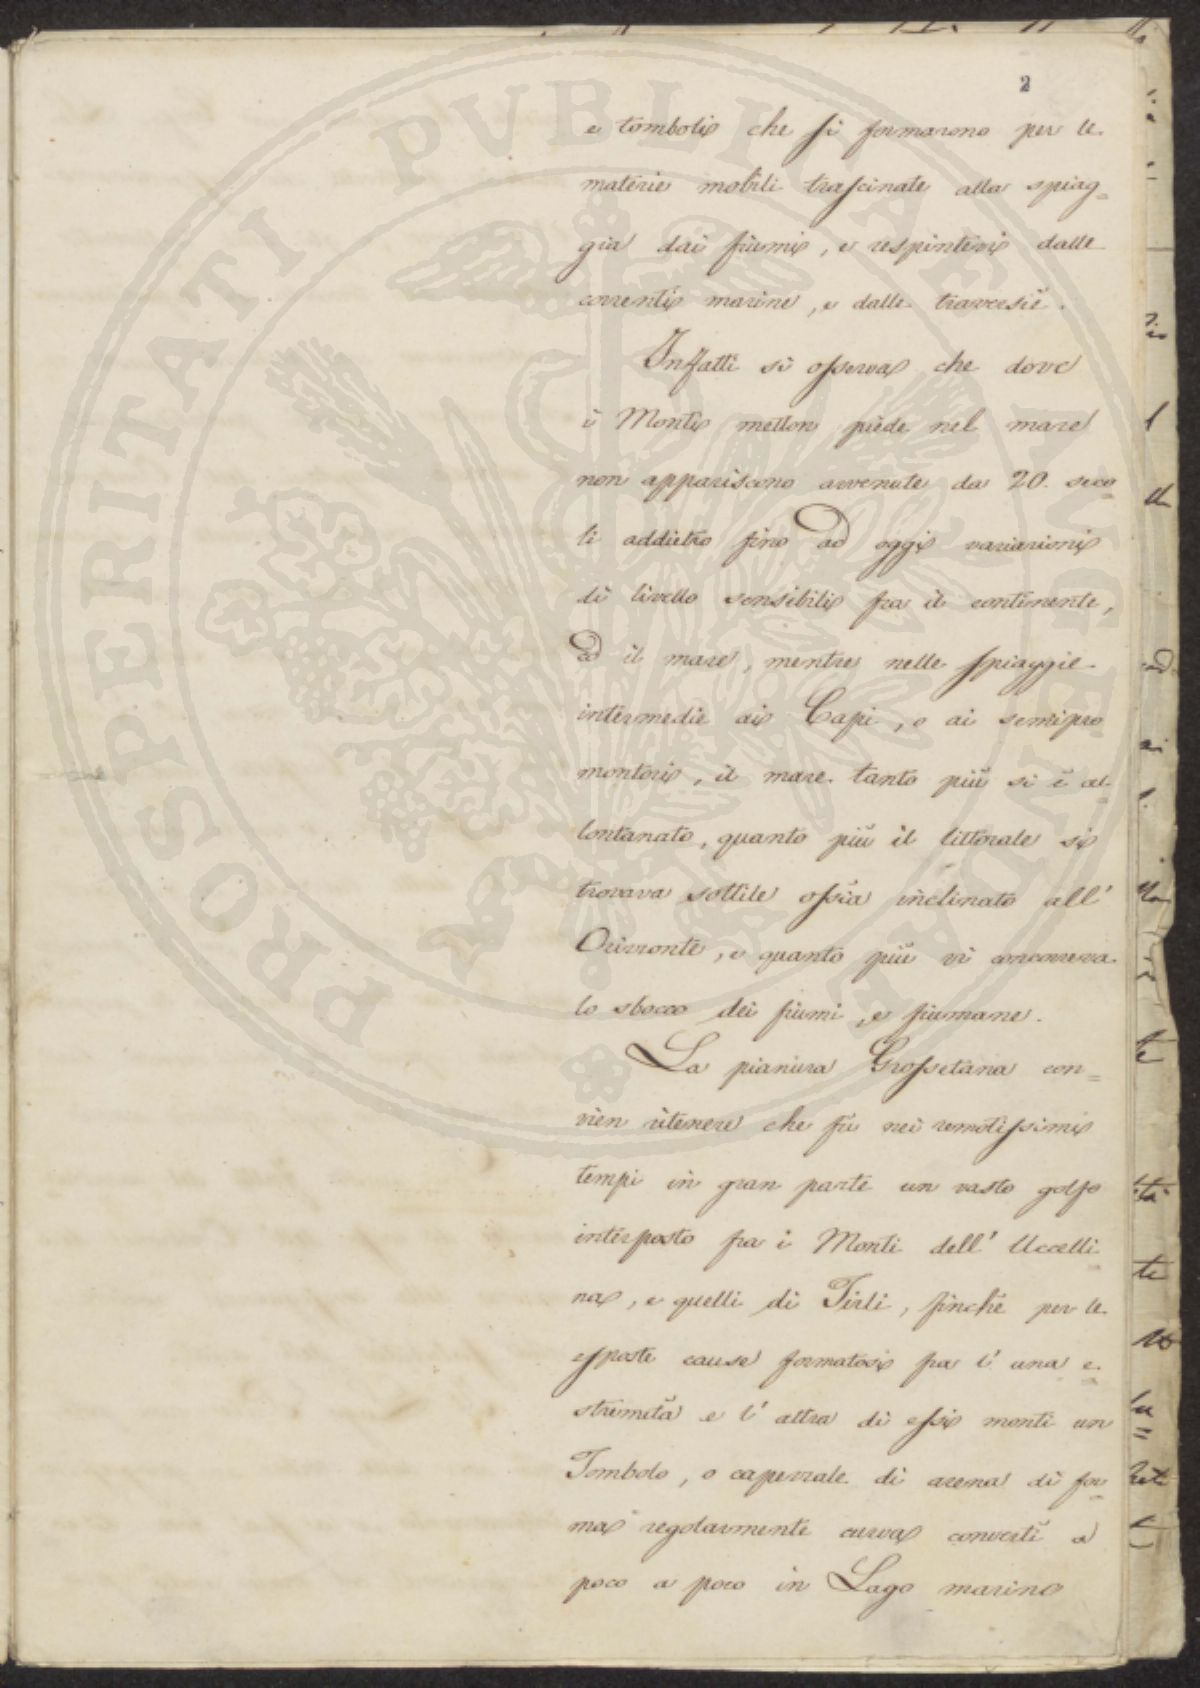 2
e tomboli che si formarono per le
materie mobili trascinate alla spiag=
gia dai fiumi, e respintevi dalle
correnti marine, e dalle traversie.
Infatti si osserva che dove
i Monti metton piede nel mare
non appariscono avvenute da 20. seco
li addietro fino ad oggi variazioni
di livello sensibili fra il continente,
ed il mare, mentre nelle spiaggie
intermedie ai Capi, o ai semipro
montori, il mare tanto più si è al-
lontanato, quanto più il littorale si
trovava sottile ossia inclinato all'
Orizzonte, e quanto più vi concorreva
lo sbocco dei fiumi, e fiumane.
La pianura Grossetana con=
vien ritenere che fù nei remotissimi
tempi in gran parte un vasto golfo
interposto fra i Monti dell' Uccelli
na, e quelli di Tirli, finchè per le
esposte cause formatosi fra l' una e
stremità e l' altra di essi monti un
Tombolo, o capezzale di arena di for
ma regolarmente curva convertì a
poco a poco in Lago marino
PROSPERITATI PVBLICAE AVGENDAE